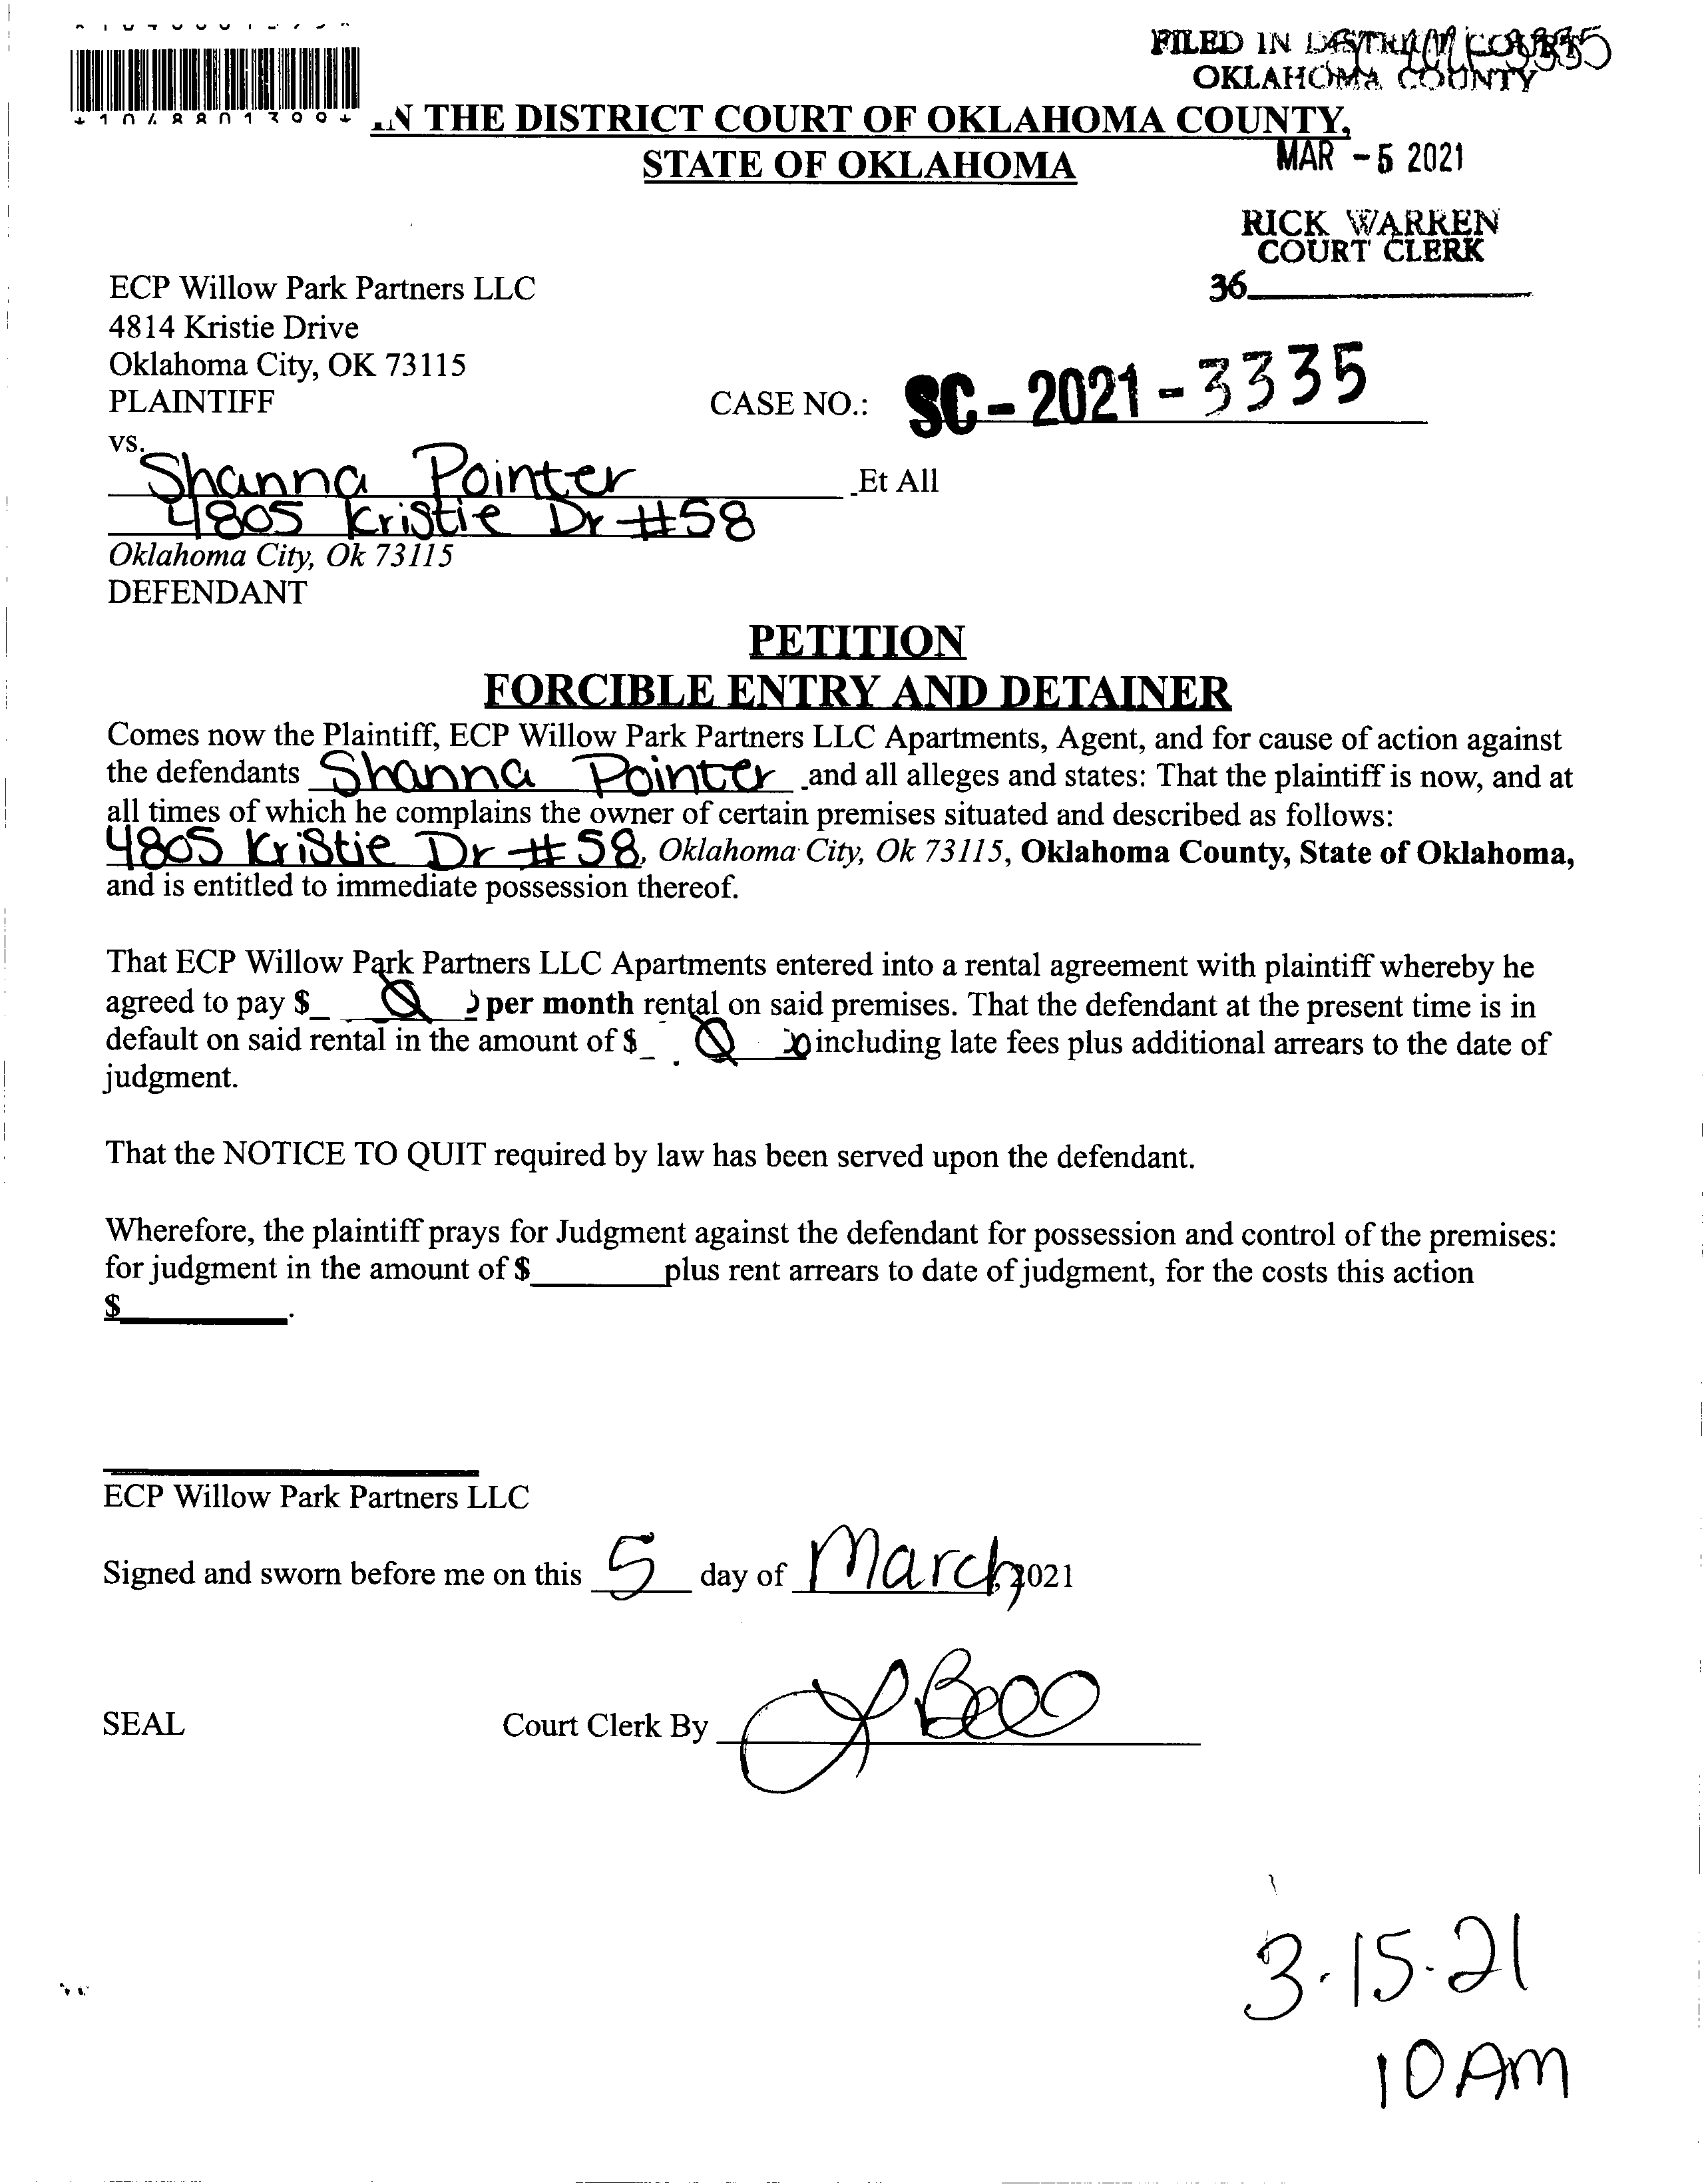 FILED IN DISTRICT COURT
OKLAHOMA COUNTY
IN THE DISTRICT COURT OF OKLAHOMA COUNTY,
STATE OF OKLAHOMA
MAR - 5 2021
RICK WARREN
COURT CLERK
36
ECP Willow Park Partners LLC
4814 Kristie Drive
Oklahoma City, OK 73115
PLAINTIFF
CASE NO.: SC - 2021 - 3335
vs.
Shanna Pointer Et All
4805 Kristie Dr #58
Oklahoma City, Ok 73115
DEFENDANT
PETITION
FORCIBLE ENTRY AND DETAINER
Comes now the Plaintiff, ECP Willow Park Partners LLC Apartments, Agent, and for cause of action against
the defendants Shanna Pointer and all alleges and states: That the plaintiff is now, and at
all times of which he complains the owner of certain premises situated and described as follows:
4805 Kristie Dr #58, Oklahoma City, Ok 73115, Oklahoma County, State of Oklahoma,
and is entitled to immediate possession thereof.
That ECP Willow Park Partners LLC Apartments entered into a rental agreement with plaintiff whereby he
agreed to pay $ Ø per month rental on said premises. That the defendant at the present time is in
default on said rental in the amount of $ Ø including late fees plus additional arrears to the date of
judgment.
That the NOTICE TO QUIT required by law has been served upon the defendant.
Wherefore, the plaintiff prays for Judgment against the defendant for possession and control of the premises:
for judgment in the amount of $________plus rent arrears to date of judgment, for the costs this action
$__________.
ECP Willow Park Partners LLC
Signed and sworn before me on this 5 day of March, 2021
SEAL Court Clerk By
3-15-21
10 AM